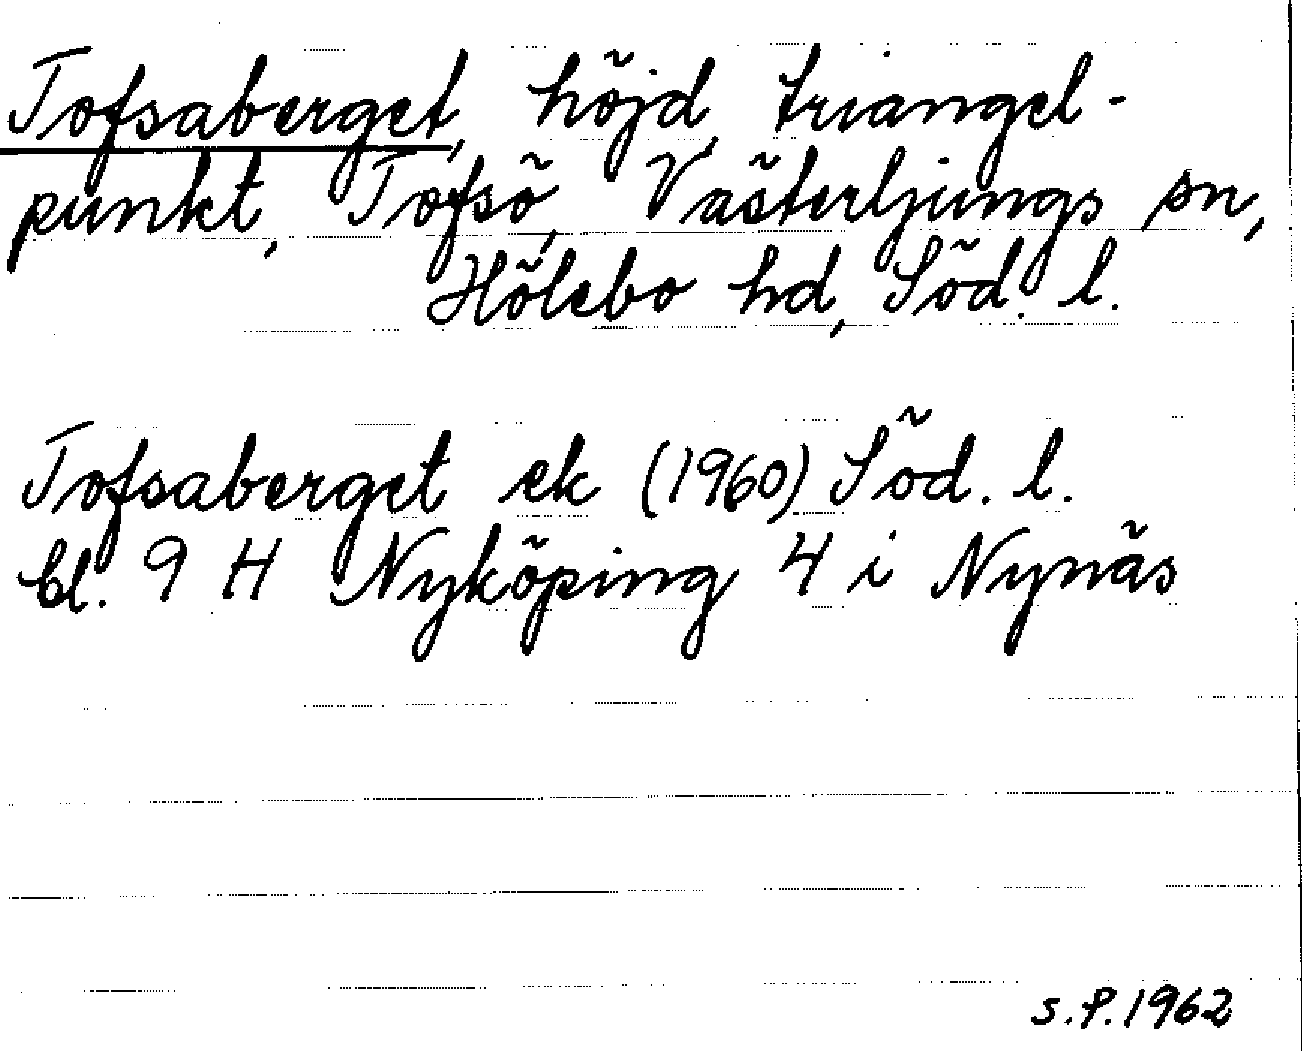 Tofsaberget, höjd, triangel-
punkt, Tofsö, Västerljungs sn,
Hölebo hd, Söd. l.
Tofsaberget ek (1960) Söd. l.
bl. 9 H Nyköping 4 i Nynäs
S.P. 1962